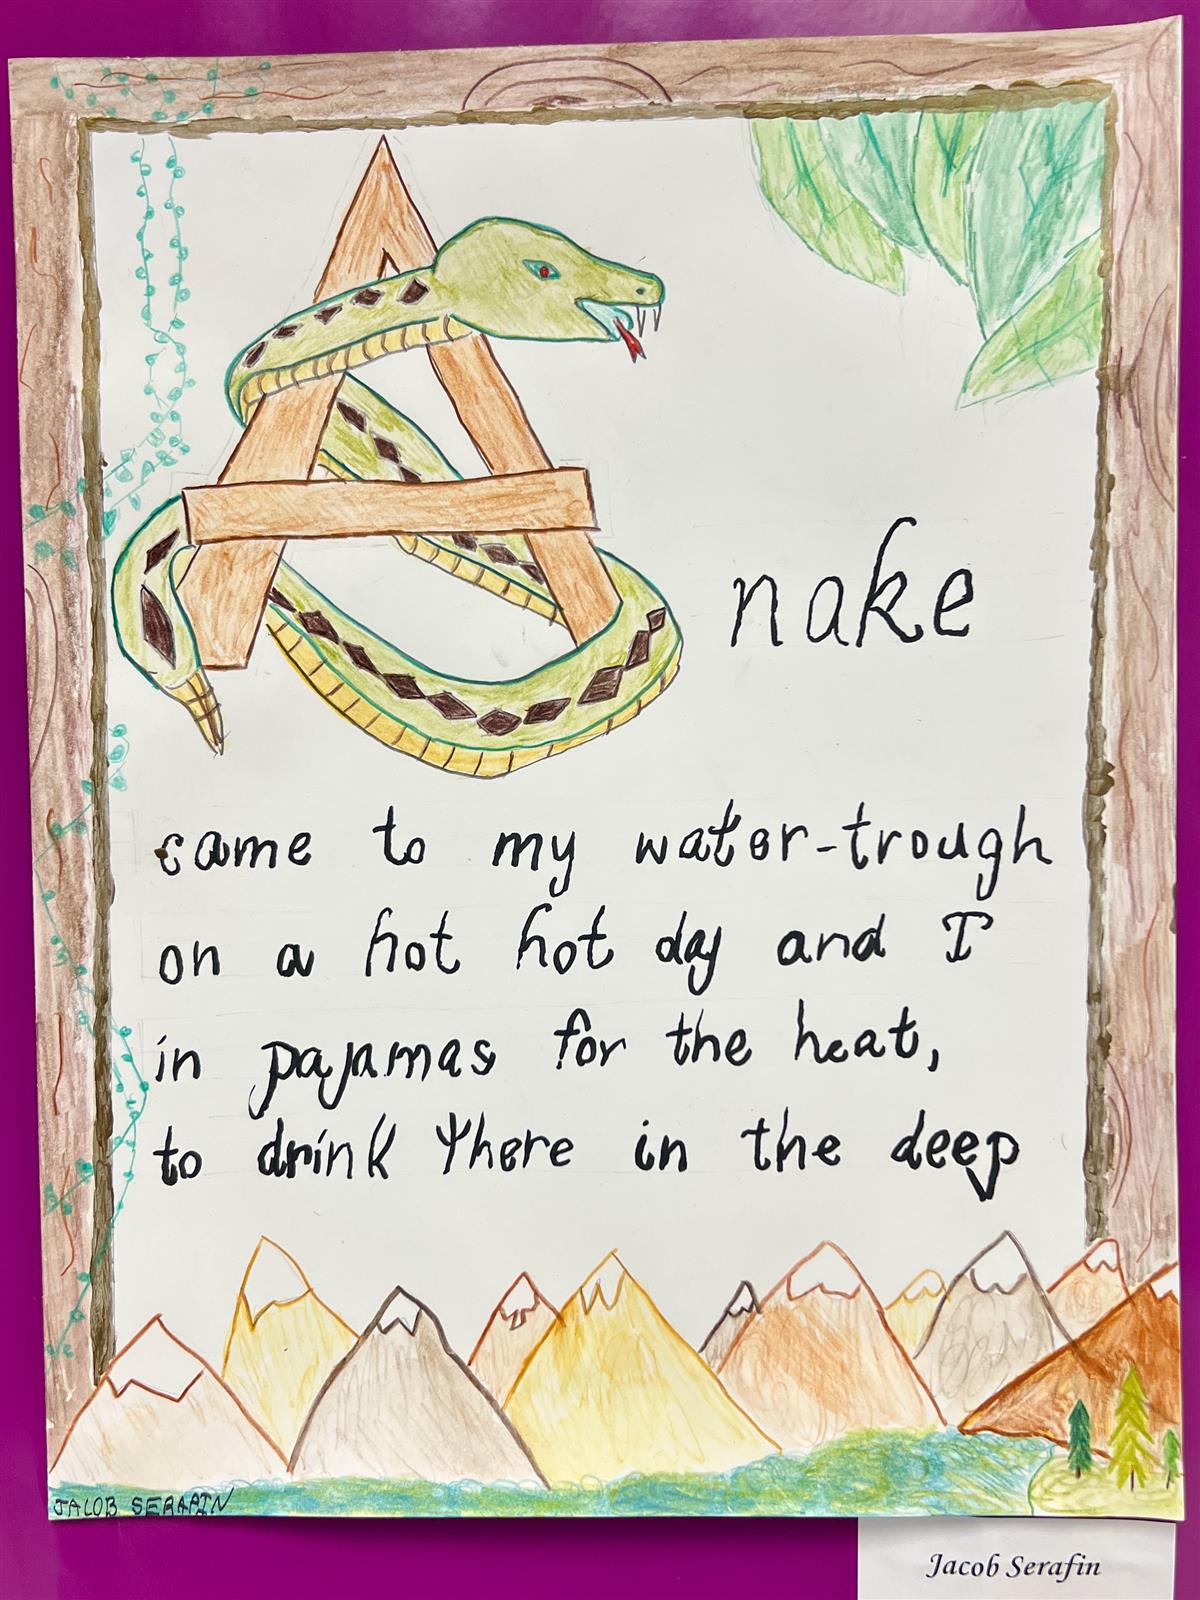 A nake
came to my water-trough
on a hot hot day and I
in pajamas for the heat,
to drink there in the deep
JACOB SERAFIN
Jacob Serafin